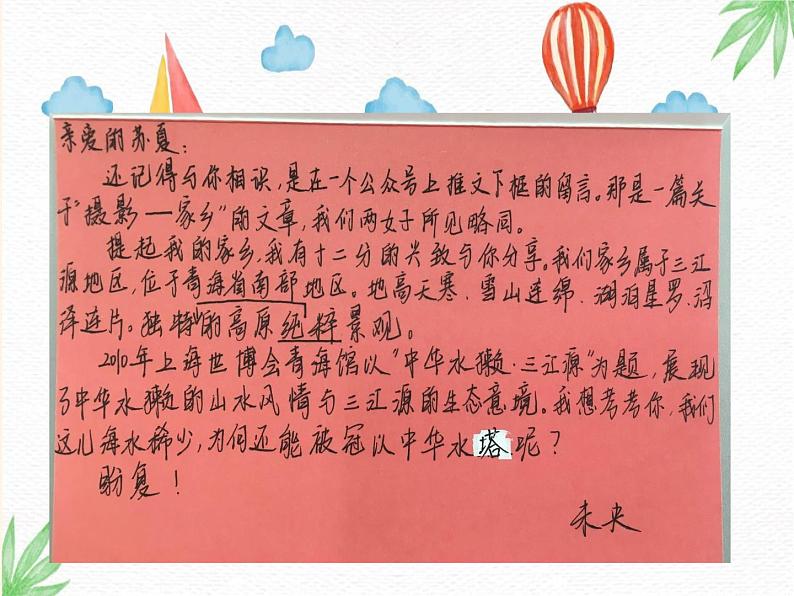 亲爱的苏夏：
还记得与你相识，是在一个公众号上推文下框的留言。那是一篇关
于“摄影—家乡”的文章，我们两女子所见略同。
提起我的家乡，我有十二分的兴致与你分享。我们家乡属于三江
源地区，位于青海省南部地区。地高天寒、雪山连绵、湖泊星罗、沼
泽连片。独特的高原纯粹景观。
2010年上海世博会青海馆以“中华水獭·三江源”为题，展现
了中华水獭的山水风情与三江源的生态意境。我想考考你，我们
这儿海水稀少，为何还能被冠以中华水塔呢？
盼复！
未央